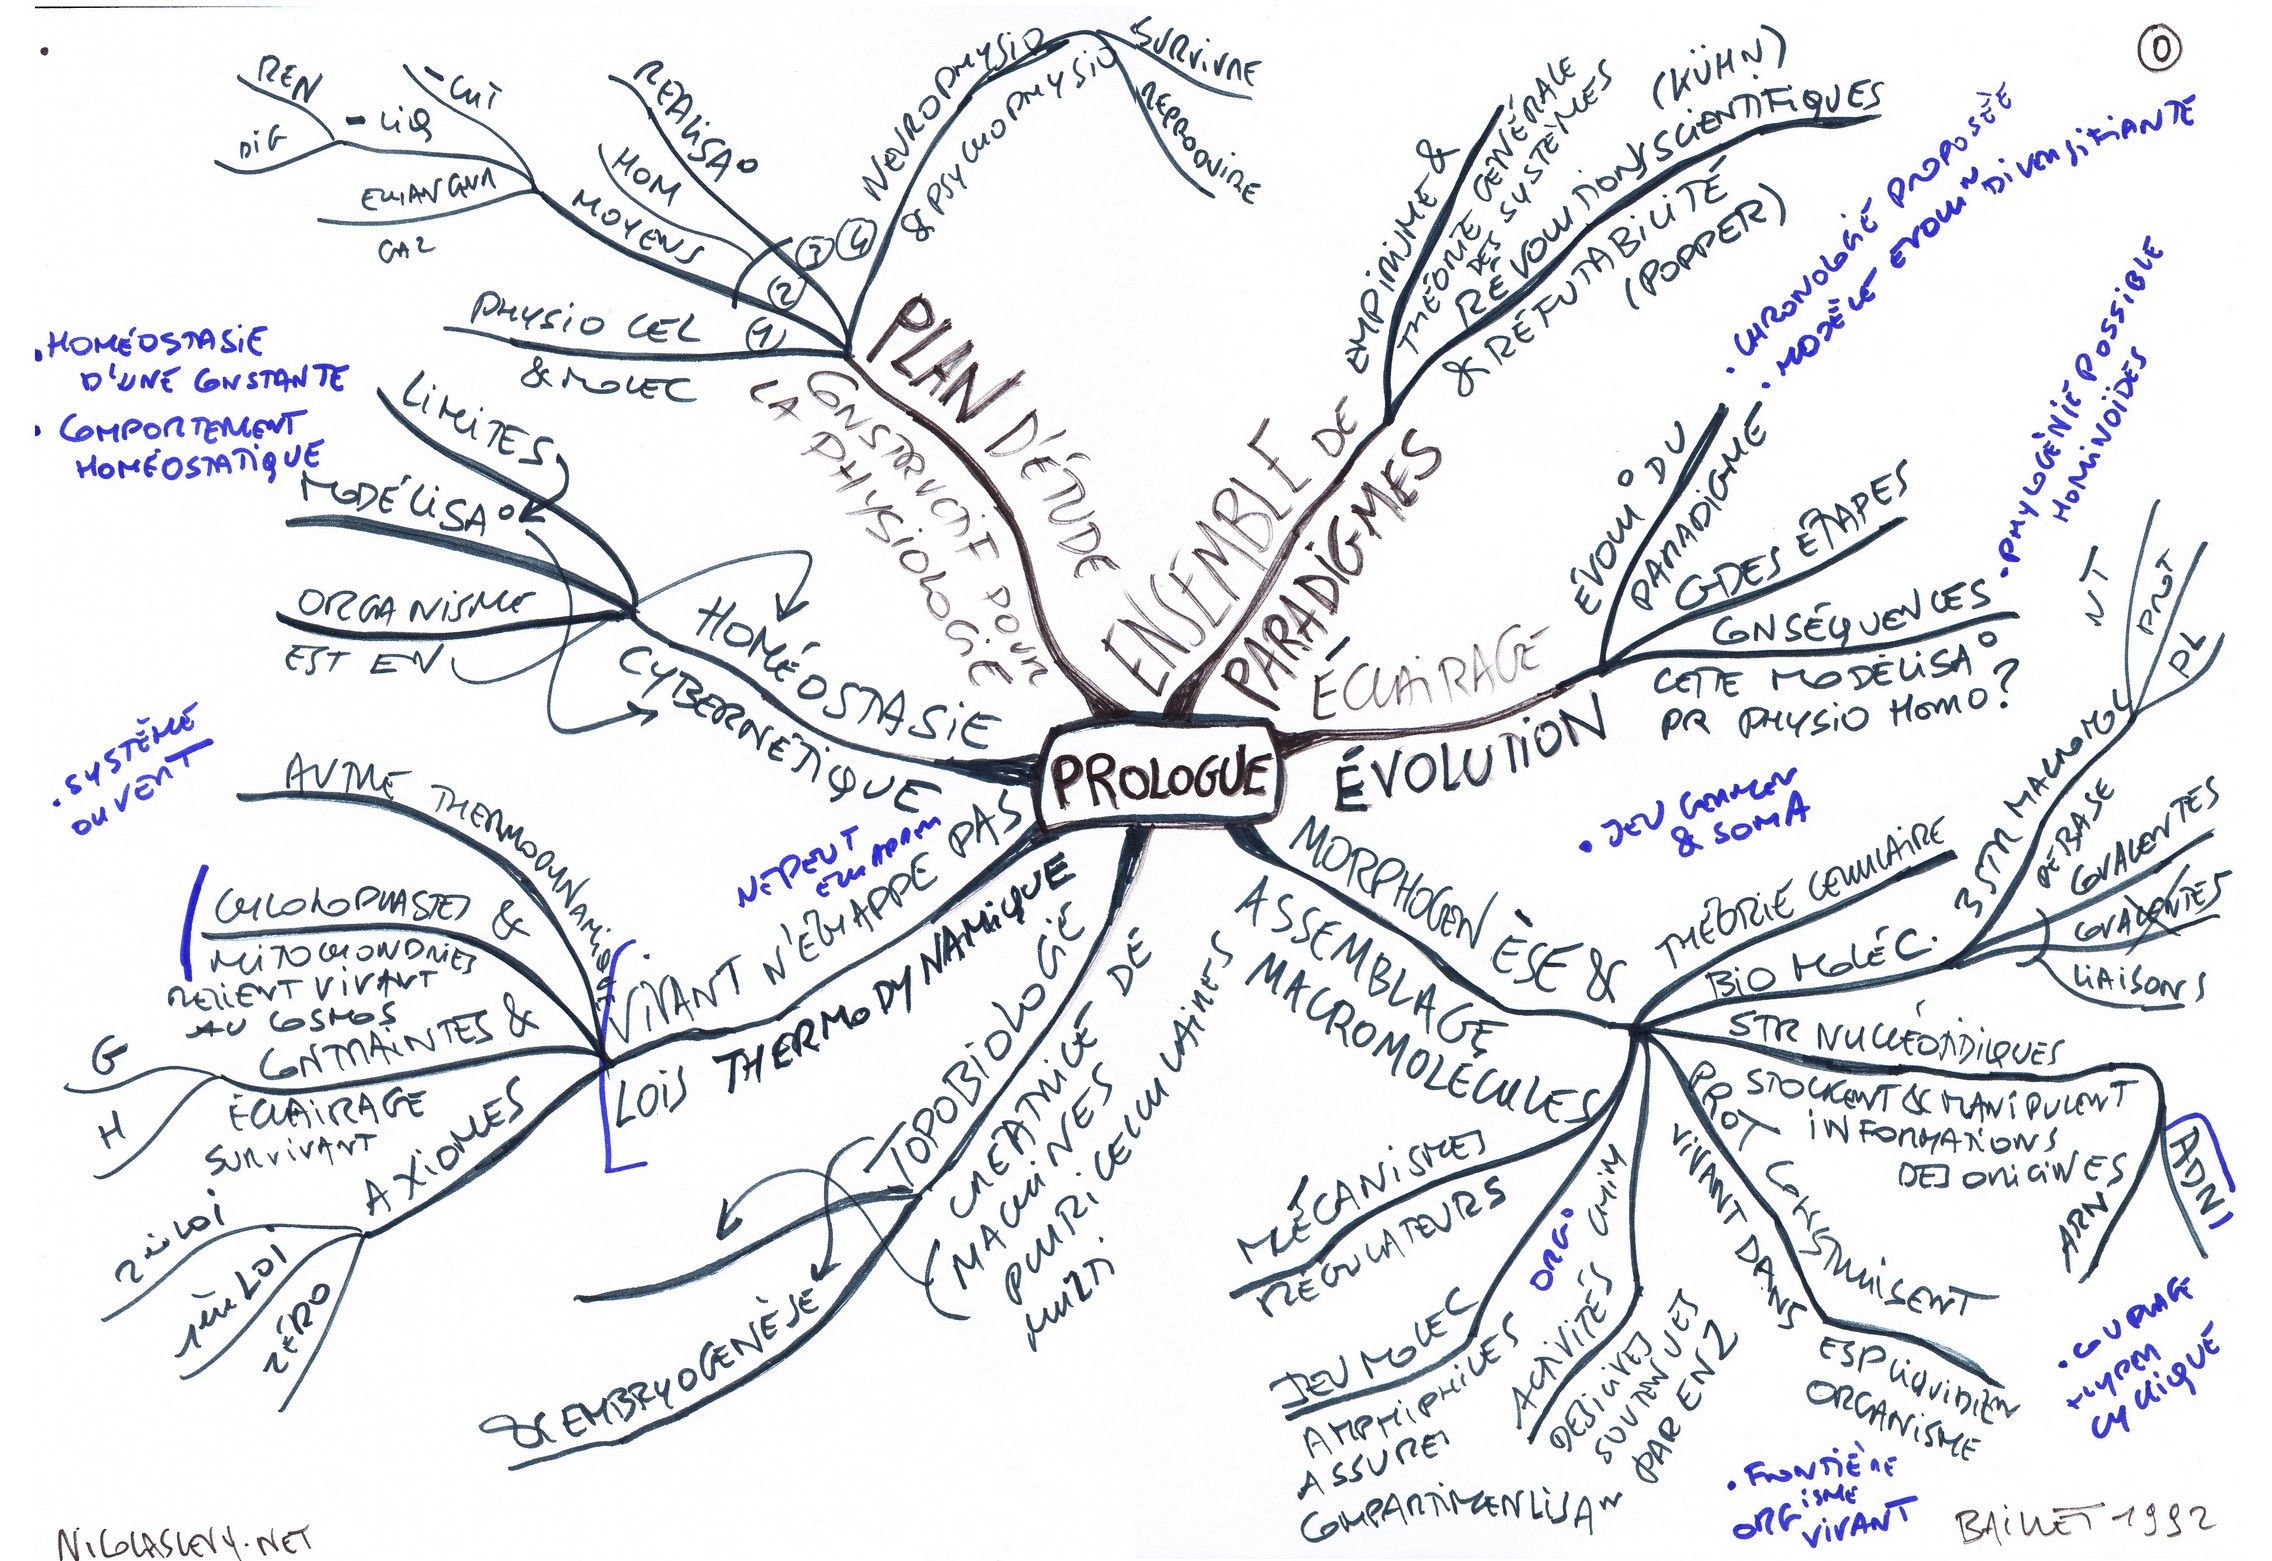 0
PROLOGUE
PLAN D'ÉTUDE
CONSTRUCTIF POUR
LA PHYSIOLOGIE
1
PHYSIO CEL
& MOLEC
2
MOYENS
GAZ
- LIQ
DIG
REN
- CUT
HOM
3
RÉALISA°
4
NEUROPHYSIO
& PSYCHOPHYSIO
SURVIVRE
REPRODUIRE
ENSEMBLE DE
PARADIGMES
EMPIRISME &
THÉORIE GÉNÉRALE
DES SYSTÈMES
(KÜHN)
RÉVOLUTIONS SCIENTIFIQUES
& RÉFUTABILITÉ
(POPPER)
ÉCLAIRAGE
ÉVOLUTION
ÉVOLU° DU
PARADIGME
• CHRONOLOGIE PROPOSÉE
• MODÈLE EVOLUN DIVERSIFIANTE
GDES ÉTAPES
• PHYLOGÉNIE POSSIBLE
HOMINOÏDES
CONSÉQUENCES
CETTE MODÉLISA°
PR PHYSIO HOMO?
• JEU GERMEN
& SOMA
MORPHOGENÈSE &
ASSEMBLAGE
MACROMOLÉCULES
THÉORIE CELLULAIRE
BIO MOLÉC.
3 STR MACROMOL
DE BASE
NT
PROT
PL
COVALENTES
COVALENTES
LIAISONS
STR NUCLÉOTIDIQUES
STOCKENT & MANIPULENT
INFORMATIONS
DES ORIGINES
ADN
ARN
• COUPLAGE
HYPER
CYCLIQUE
PROT CONSTRUISENT
VIVANT DANS
ESP LIQUIDIEN
ORGANISME
• FRONTIÈRE
ORGISME
VIVANT
ORG°
CHIM
ACTIVITÉS
DÉCISIVES
SOUTENUES
PAR ENZ
JEU MOLEC
AMPHIPHILES
ASSURE
COMPARTIMENTALISAN
MÉCANISMES
RÉGULATEURS
TOPOBIOLOGIE
CRÉATRICE DE
MACHINES
PLURICELLULAIRES
MULTI
& EMBRYOGENÈSE
NE PEUT
ÉCHAPPER
VIVANT N'ÉCHAPPE PAS
LOIS THERMODYNAMIQUE
AUTRE THERMODYNAMIQUE
• SYSTÈME
OUVERT
CHLOROPLASTES &
MITOCHONDRIES
RELIENT VIVANT
AU COSMOS
CONTRAINTES &
ÉCLAIRAGE
SURVIVANT
G
H
AXIOMES
2è LOI
1ère LOI
ZÉRO
HOMÉOSTASIE
CYBERNÉTIQUE
LIMITES
MODÉLISA°
ORGANISME
EST EN
• HOMÉOSTASIE
D'UNE CONSTANTE
• COMPORTEMENT
HOMÉOSTATIQUE
NICOLASLEVY.NET
BAILLET 1992